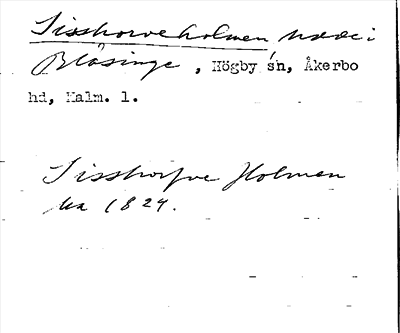 Sisshorveholmen udde i
Blåsinge, Högby sn, Åkerbo
hd, Kalm. l.
Sisshorfve Holmen
lm 1824.